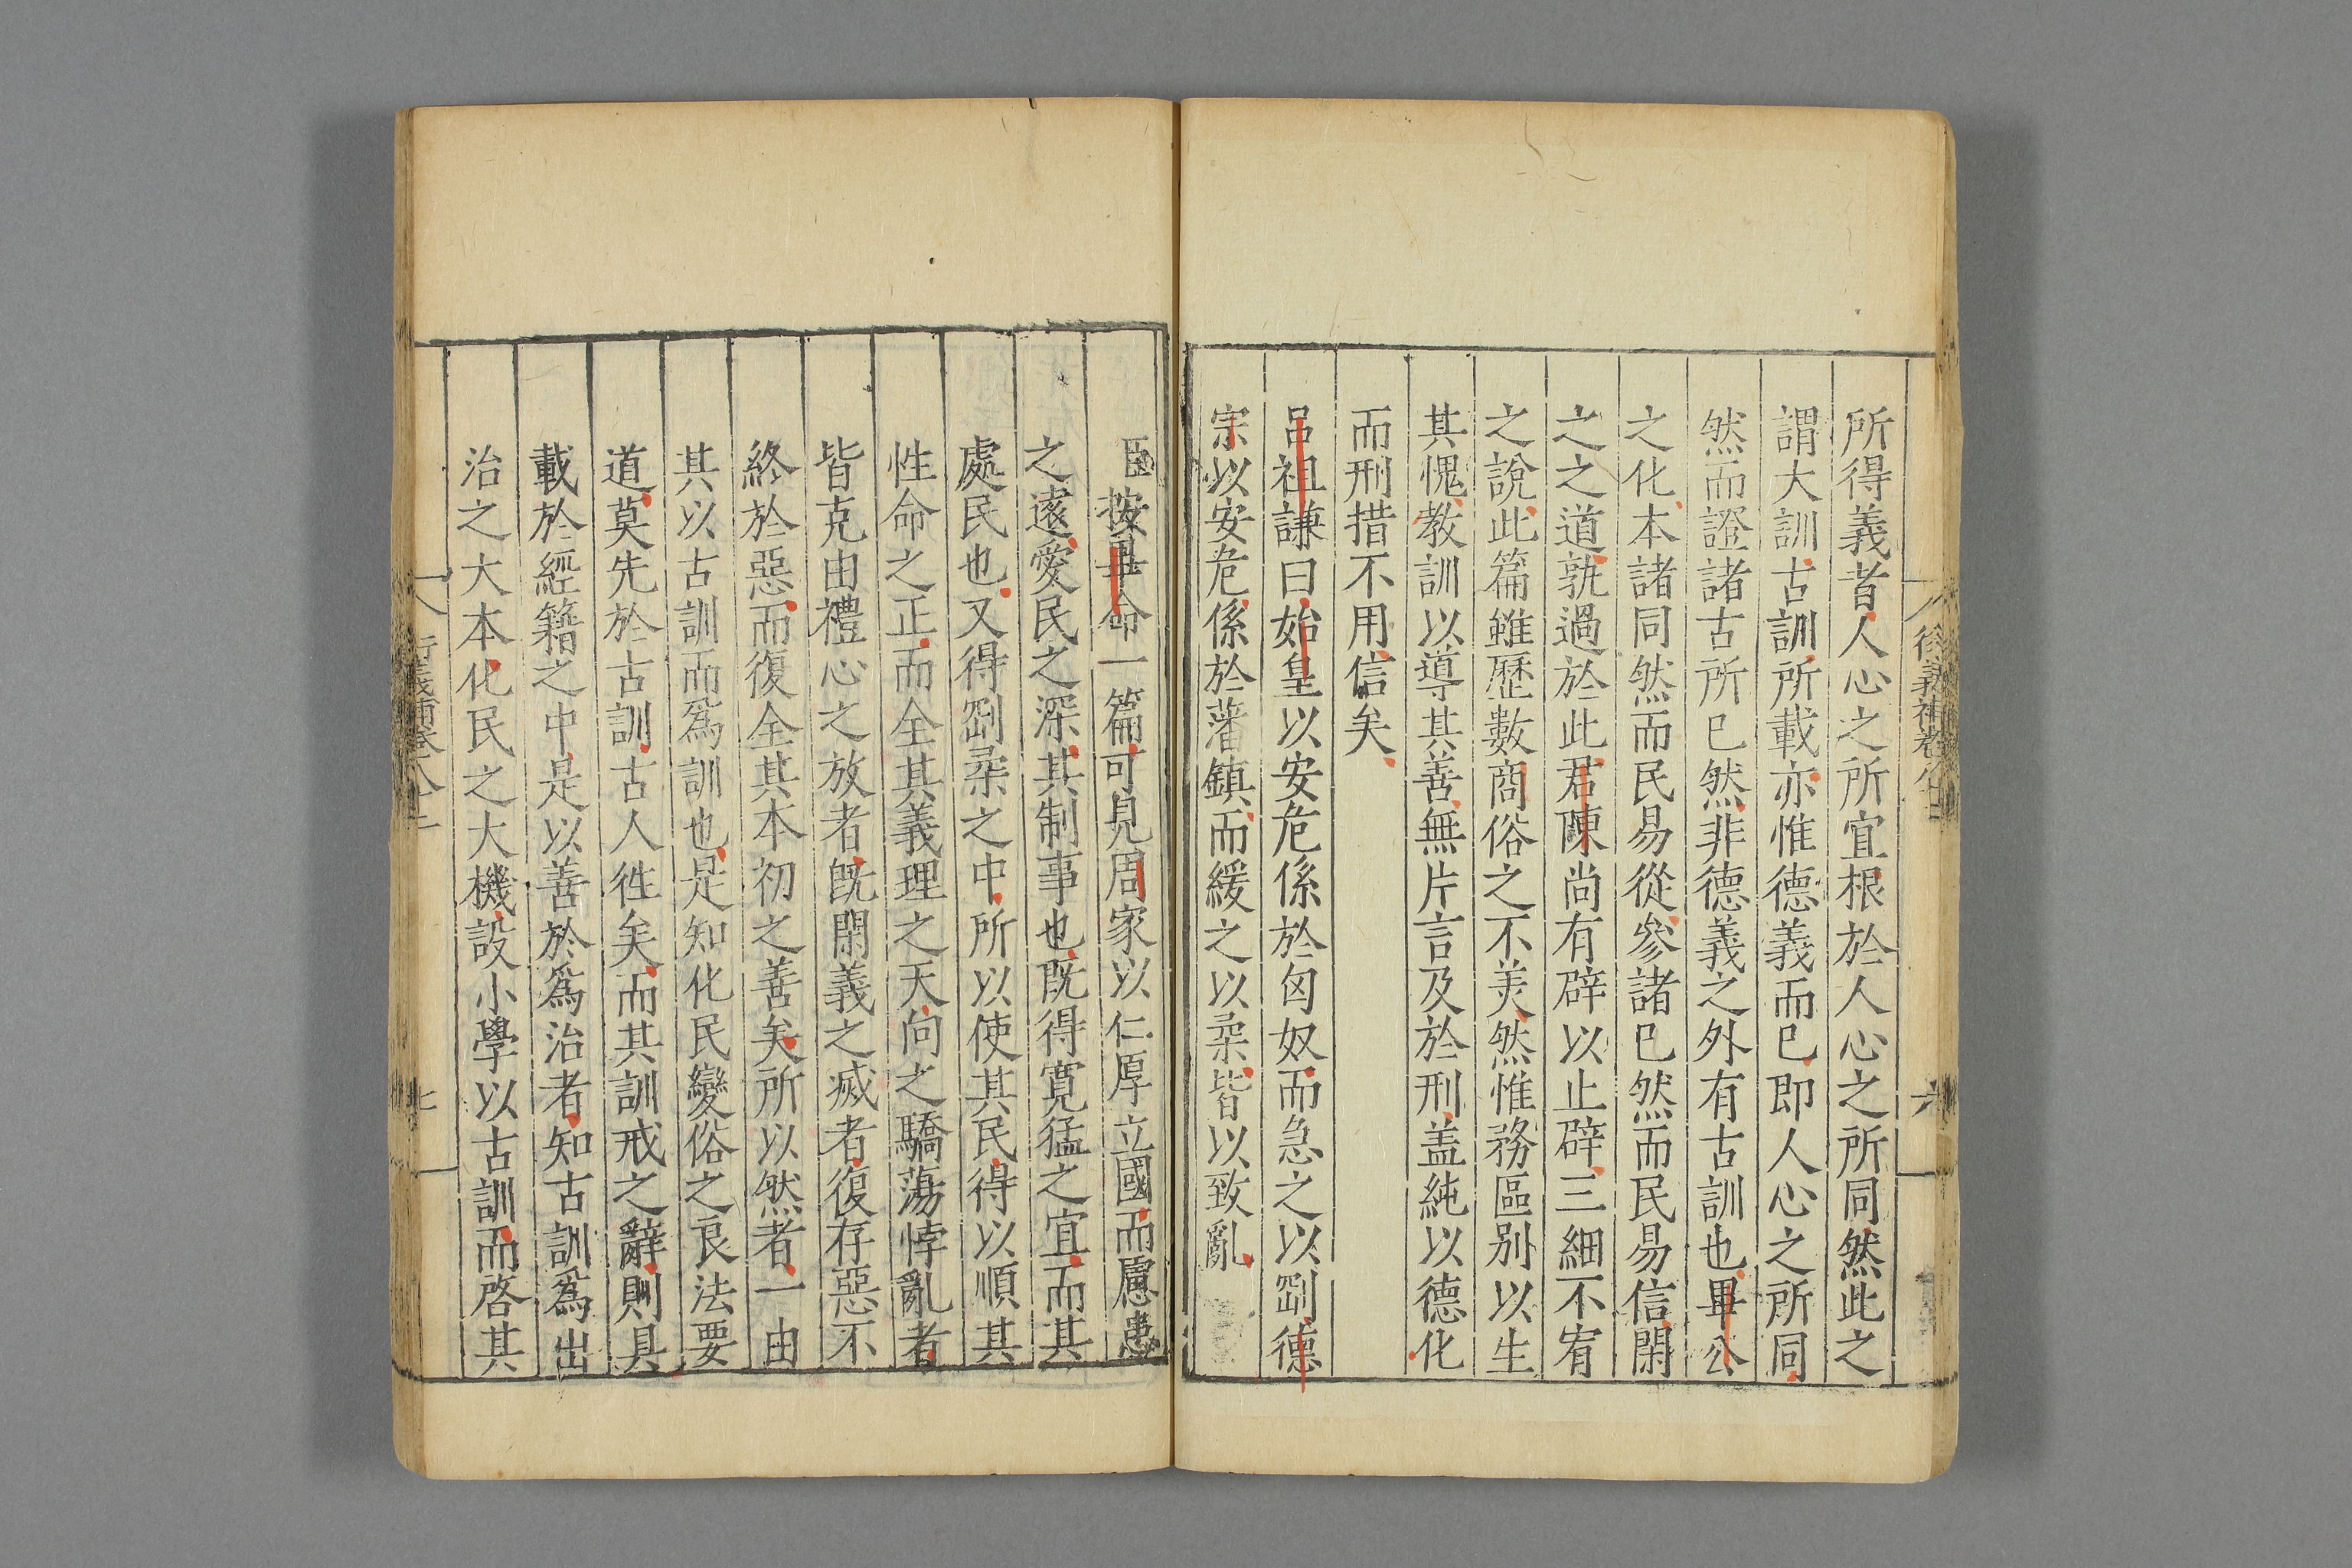 所得義者人心之所宜根於人心之所同然此之
謂大訓古訓所載亦惟德義而已即人心之所同
然而證諸古所已然非德義之外有古訓也畢公
之化本諸同然而民易從參諸已然而民易信閑
之之道孰過於此君陳尚有辟以止辟三細不宥
之說此篇雖歷數商俗之不美然惟務區别以生
其愧教訓以導其善無片言及於刑盖純以德化
而刑措不用信矣
呂祖謙曰始皇以安危係於匈奴而急之以剛德
宗以安危係於藩鎮而緩之以柔皆以致亂
臣按畢命一篇可見周家以仁厚立國而慮患
之遠愛民之深其制事也既得寬猛之宜而其
處民也又得剛柔之中所以使其民得以順其
性命之正而全其義理之天向之驕蕩悖亂者
皆克由禮心之放者既閑義之滅者復存惡不
終於惡而復全其本初之善矣所以然者一由
其以古訓而爲訓也是知化民變俗之良法要
道莫先於古訓古人徃矣而其訓戒之辭則具
載於經籍之中是以善於爲治者知古訓爲出
治之大本化民之大機設小學以古訓而啓其